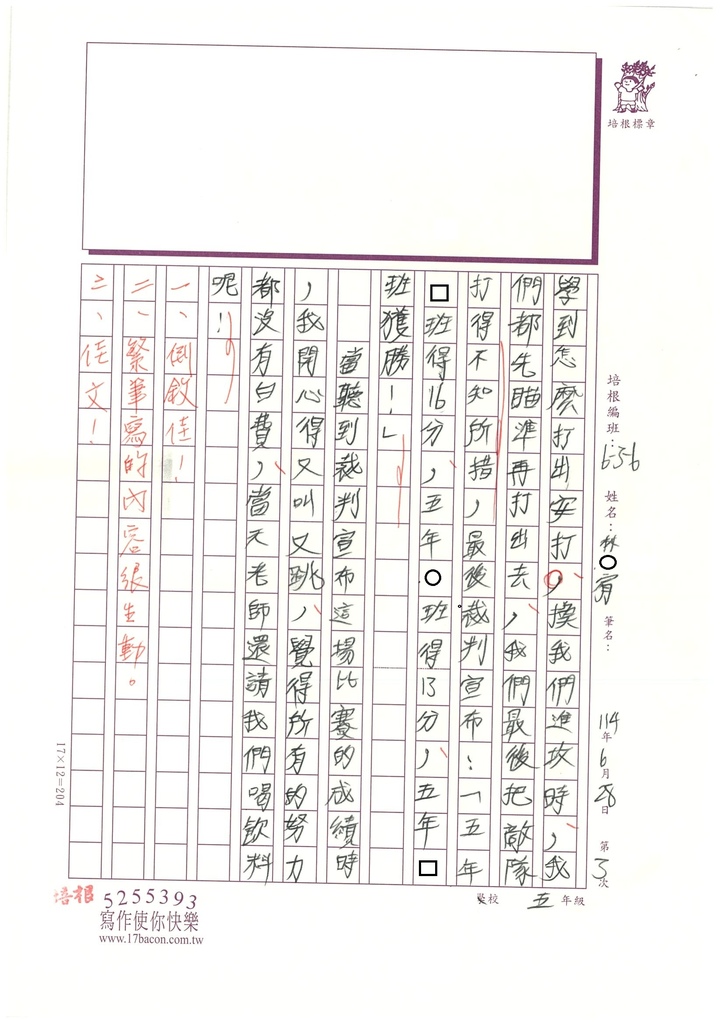 培根標章
培根編班：636 姓名：林○宥 筆名： 114年6月28日 第3次
學到怎麼打出安打，換我們進攻時，我
們都先瞄準再打出去，我們最後把敵隊
打得不知所措，最後裁判宣布：「五年
□班得16分，五年○班得13分，五年□
班獲勝！」
當聽到裁判宣布這場比賽的成績時
，我開心得又叫又跳，覺得所有的努力
都沒有白費，當天老師還請我們喝飲料
呢！
一、倒敘佳！
二、繁筆寫的內容很生動。
三、佳文！
學校 五年級
17×12=204
培根 5255393
寫作使你快樂
www.17bacon.com.tw